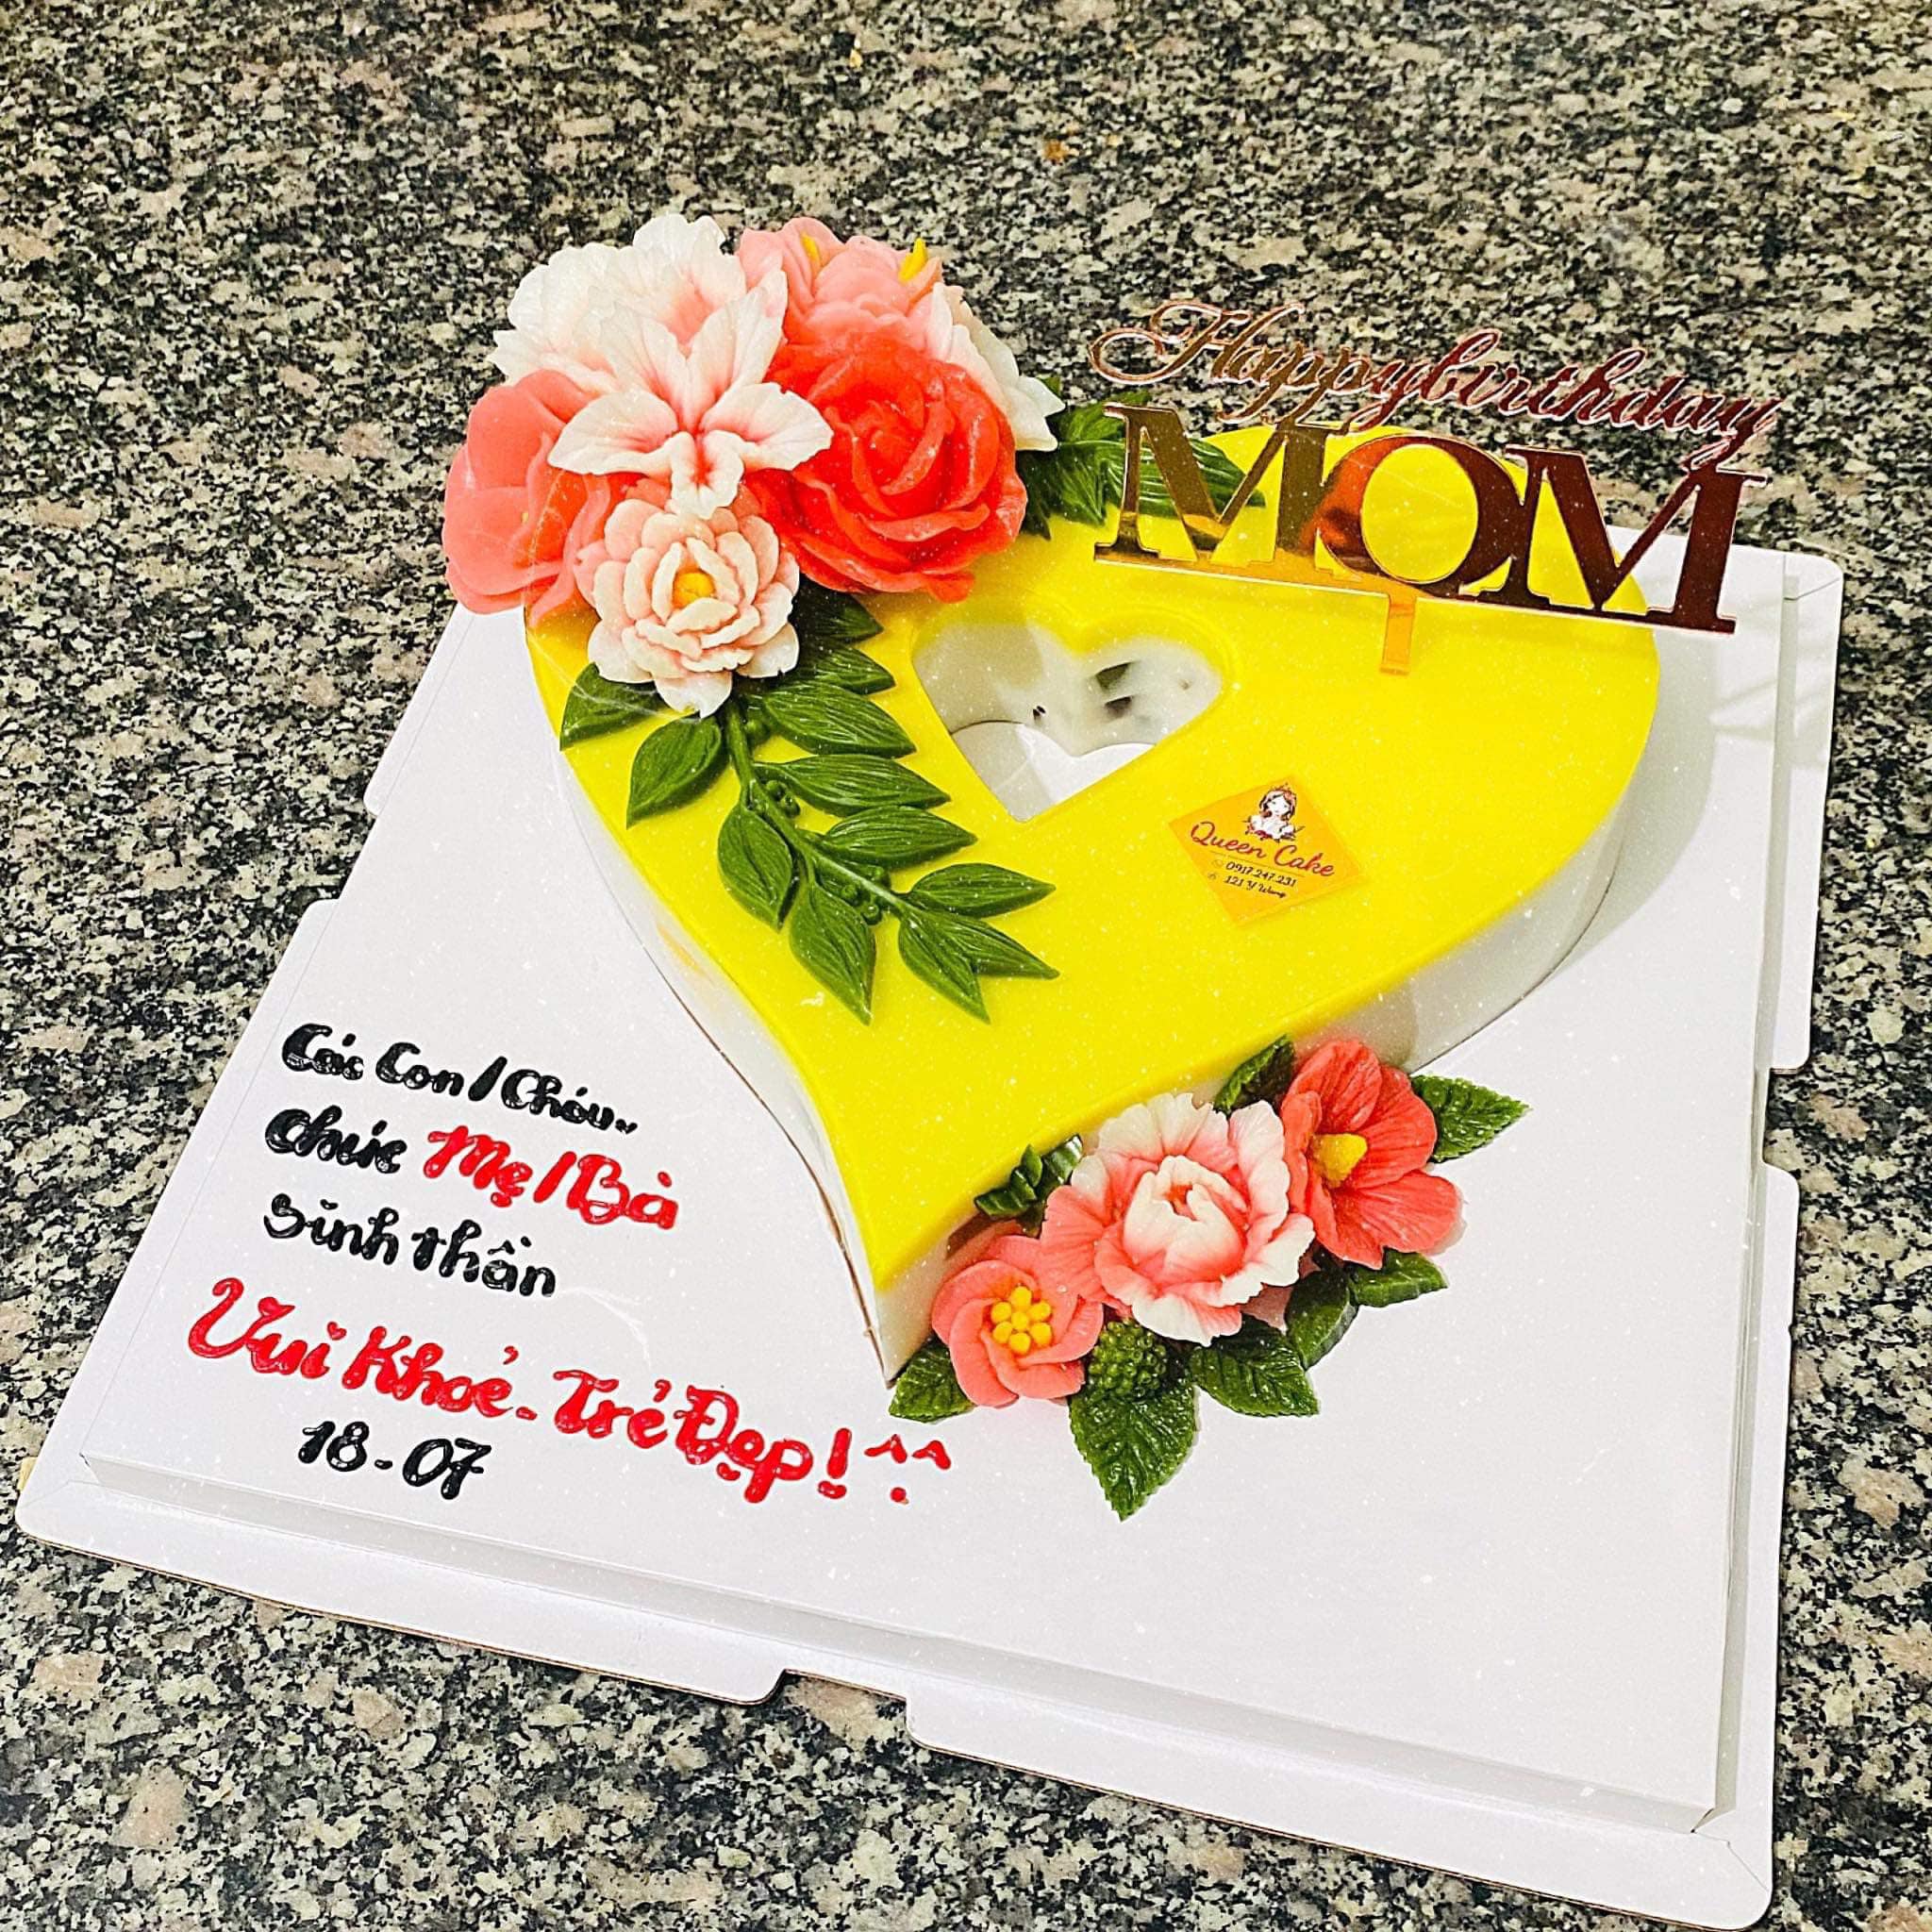 Happybirthday
MOM
Queen Cake
0917.247.231
121 Y Wang
Các Con / Cháu..
Chúc Mẹ / Bà
Sinh thần
Vui Khoẻ - Trẻ Đẹp ! ^^
18 - 07